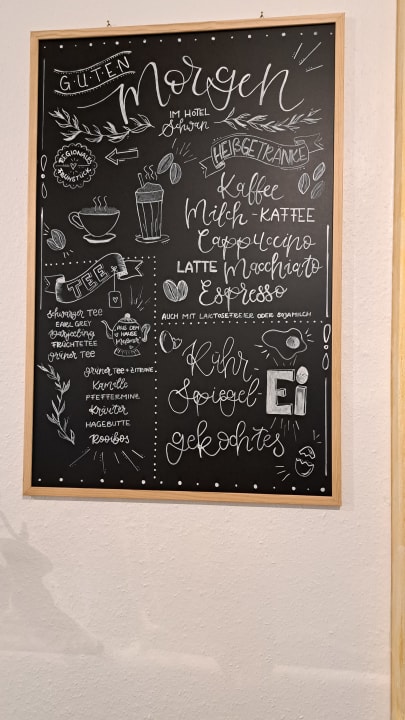 GUTEN
Morgen
IM HOTEL
Schwan
REGIONALES
FRÜHSTÜCK
HEIßGETRÄNKE
Kaffee
Milch-KAFFEE
Cappuccino
LATTE Macchiato
Espresso
AUCH MIT LAKTOSEFREIER ODER SOJAMILCH
TEE
schwarzer TEE
EARL GREY
Darjeeling
FRÜCHTETEE
grüner TEE
AUS DEM
HAUSE
grüner TEE + ZITRONE
Kamille
PFEFFERMINZ
Kräuter
HAGEBUTTE
ROOIBOS
Rühr
Spiegel-
gekochtes
Ei